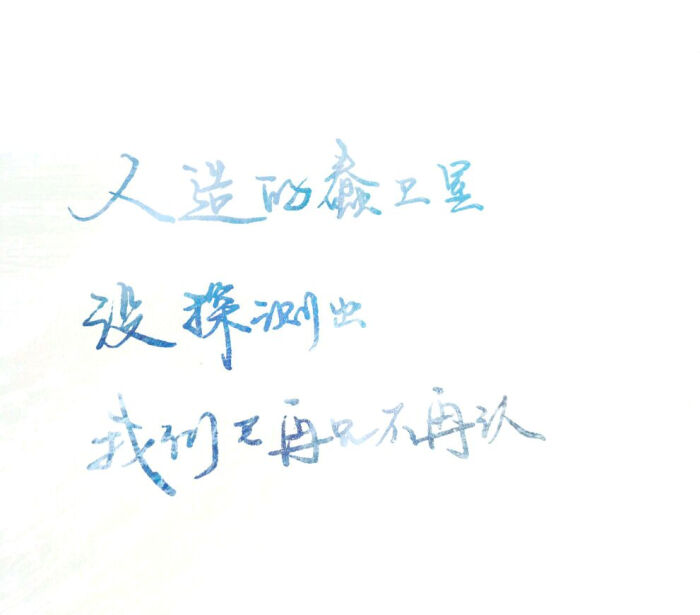 人造的蠢卫星
没探测出
我们已再见不再认